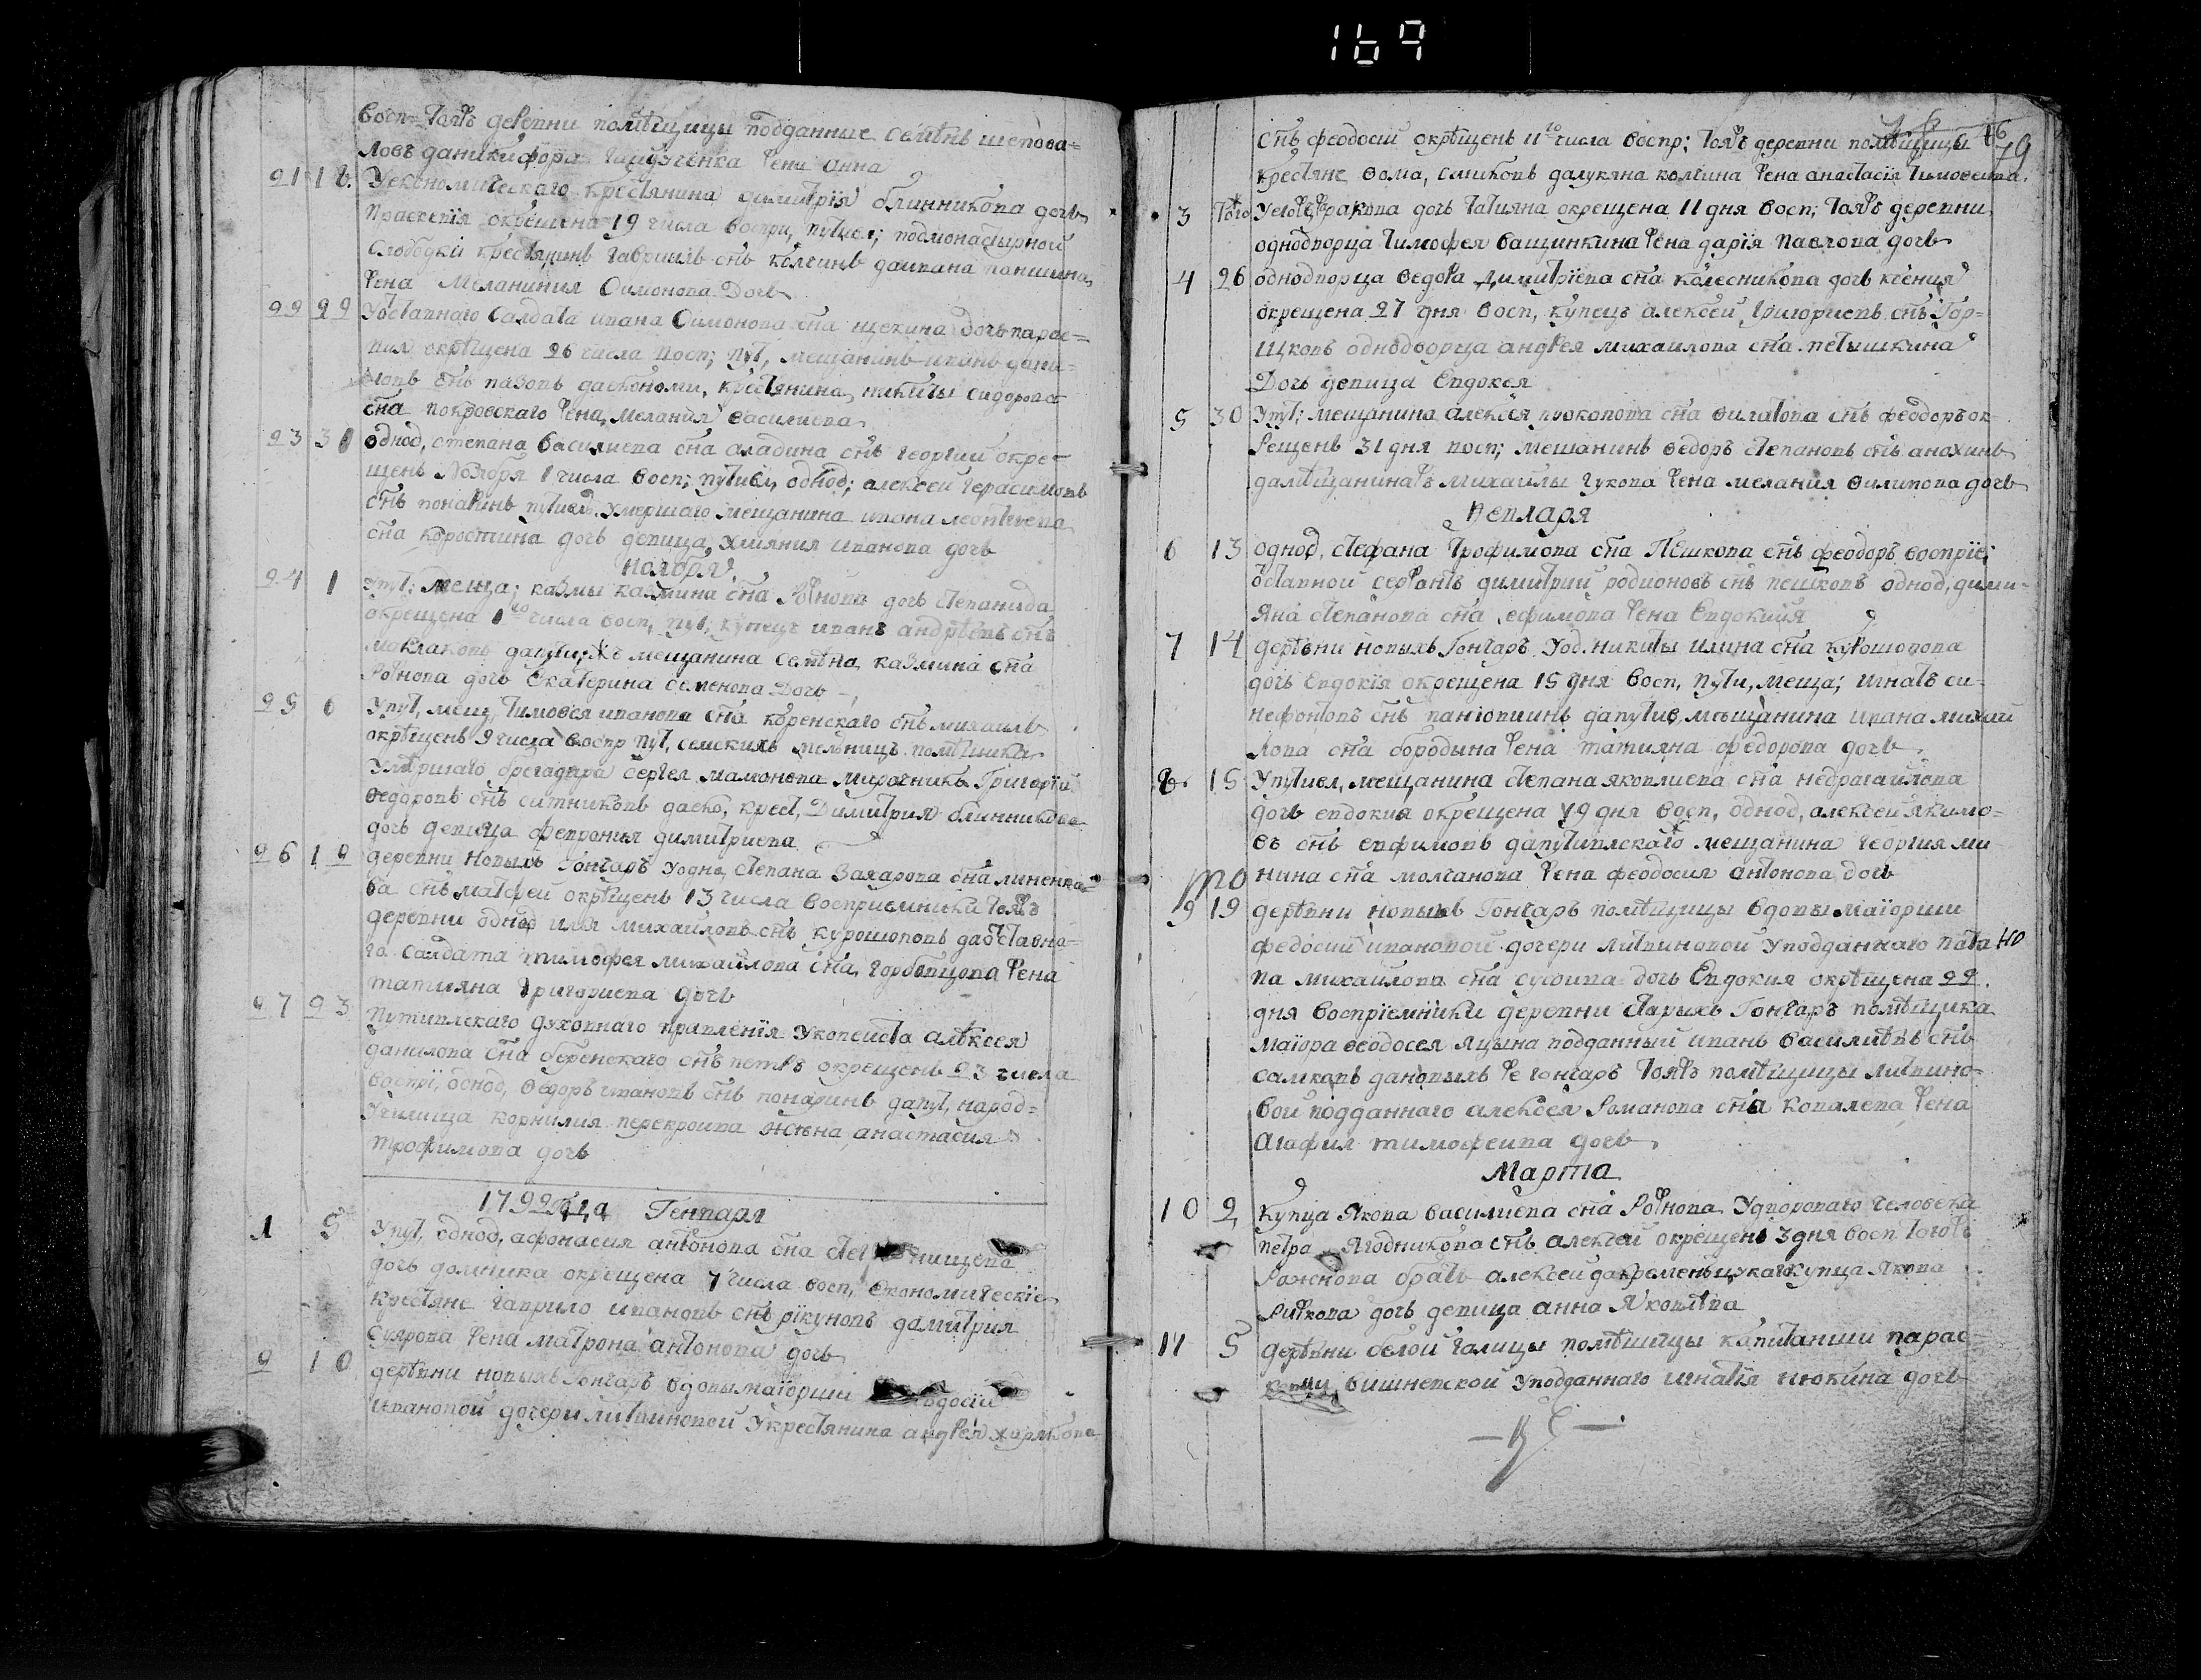 169
Восп= тояжъ деревни помѣщицы подданные семѣнъ шепова=
ловъ даникифора гайдученка жена анна
21 18 Уекономическаго крестянина димитрїя блинникова дочь
праскевїя окрещена 19 числа воспри, путивл; подмонастырной
слободки крестянинъ гавриилъ снъ колгинъ
жена Меланиния Симонова дочь
22 22 Уоставнаго салдата ивана Симонова сна щекина дочь парас=
кил окрѣщена 26 числа восп; пут, мещанинъ иванъ дани=
ловъ снъ вазовъ даекономи, крестянина никиты сидорова
сна покровскаго жена, мелания василиева
23 31 однод, степана василиева сна аладина снъ георгий окре=
щенъ Ноября 1 числа восп; путивл, однод; алексей герасимовъ
снъ понаринъ путивл, умершаго мещанина ивана леонтиева
сна коростина дочь девица, улияния иванова дочь
Ноября
24 1 Упут; меща; казмы казмина сна рѣжнова дочь степанида
окрещена 1го числа восп, пут, купецъ иванъ андрѣевъ снъ
маклаковъ дапутижъ мещанина семѣна казмина сна
дочь Екатерина семенова дочь
25 6 Упут, мещ, тимовѣя иванова сна коренскаго снъ михаилъ
окрѣщенъ 9 числа воспр пут, семскихъ мельницъ помѣщика
Умѣршаго брегадира сергея мамонова мирочникъ Григорїй
ѳедоровъ снъ ситниковъ даеко, крест, Димитрия блинникова
дочь девица февронья димитриева
26 12 деревни новыхъ Гончаръ уодно, степана Захарова сна линенко=
ва снъ матфей окрѣщенъ 13 числа восприемники тояжъ
деревни однод илья михаиловъ снъ курошоповъ даотставна=
го салдата тимофея михайлова сна горбовцова жена
татияна григориева дочь
27 23 Путивлскаго духовнаго правленїя укопеиста алѣксея
данилова сна беренскаго снъ петръ окрещенъ 23 числа
воспрї, однод, ѳедоръ ивановъ снъ понаринъ дапут, народ=
училища корнилия перекроива жена анастасия
трофимова дочь
1792 года Генваря
1 5 Упут, однод, афонасия антонова сна нищева
дочь домника окрещена 7 числа восп, економическїе
крестяне гаврило ивановъ снъ рїкуновъ домитрия
суярова жена матрона антонова дочь
2 10 дерѣвни новыхъ Гончаръ вдовы маїорши федосїи
ивановой дочери литвиновой укрестянина андрея хирякова
46
79
снъ феодосий окрѣщенъ 11го числа воспр; тояжъ деревни помѣщицы
крестяне ѳома, семиковъ далукяна колгина жена анастасїя тимовеива
3 того Уегожъ ракова дочь татияна окрещена 11 дня восп; тояжъ деревни
однодворца тимофея ващинкина жена дарїя павлова дочь
4 26 однодворца ѳедора димитрїева сна колесникова дочь ксения
окрещена 27 дня восп, купецъ алексей григориевъ снъ Гор=
шковъ однодворца андрея михаилова сна петышкина
дочь девица Евдокея
5 30 Упут; мещанина алексея прокопова сна ѳилатова снъ феодоръ ок
рещенъ 31 дня восп; мещанинъ ѳедоръ степановъ снъ анахинъ
дамѣщанинажъ михаилы гукова жена мелания ѳилипова дочь
Февларя
6 13 однод, стефана трофимова сна пѣшкова снъ феодоръ воспрїе;
отставной сержантъ димитрий родионовъ снъ пешковъ однод, дими=
яна степанова сна ефимова жена Евдокийя
7 14 дерѣвни новыхъ Гончаръ Уод, никиты илина сна курошопова
дочь Евдокїя окрещена 15 дня восп, пути, меща; игнатъ си=
нефонтовъ снъ дапутив, мѣщанина ивана михаи
лова сна бородына жена татияна федорова дочь
8 15 Упутивл, мещанина степана яковлиева сна недрагайлова
дочь евдокия окрещена 19 дня восп, однод, алексей якимо=
въ снъ евфимовъ дапутивлскаго мещанина георгия ми
нина сна молчанова жена феодосия антонова дочь
9 19 дерѣвни новыхъ Гончаръ помѣщицы вдовы маїорши
федосии ивановой дочери литвиновой уподданнаго пота
па михаилова сна дочь Евдокия окрѣщена 22
дня воспрїемники деревни старыхъ Гончаръ помѣщика
маїора ѳеодосея яцына подданный иванъ василиевъ снъ
самковъ дановыхъ же гончаръ тояжъ помѣщицы литвино=
вой подданнаго алексея романова сна ковалева жена
Агафия тимофеива дочь
Марта
10 2 Купца Якова василиева сна рѣжнова Удворового человека
петра Ягодникова снъ алексей окрещенъ 3 дня восп тогожъ
ражнова братъ алексей дакременьцукаго купца якова
дочь девица анна Яковлева
11 5 дерѣвни белой галицы помѣщицы капитанши парас=
кевии вишневской уподданнаго игнатїя нюкина дочь